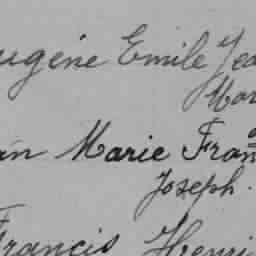 ugène Emile Jea
Mar
an Marie Fran
Joseph.
Francis Henri